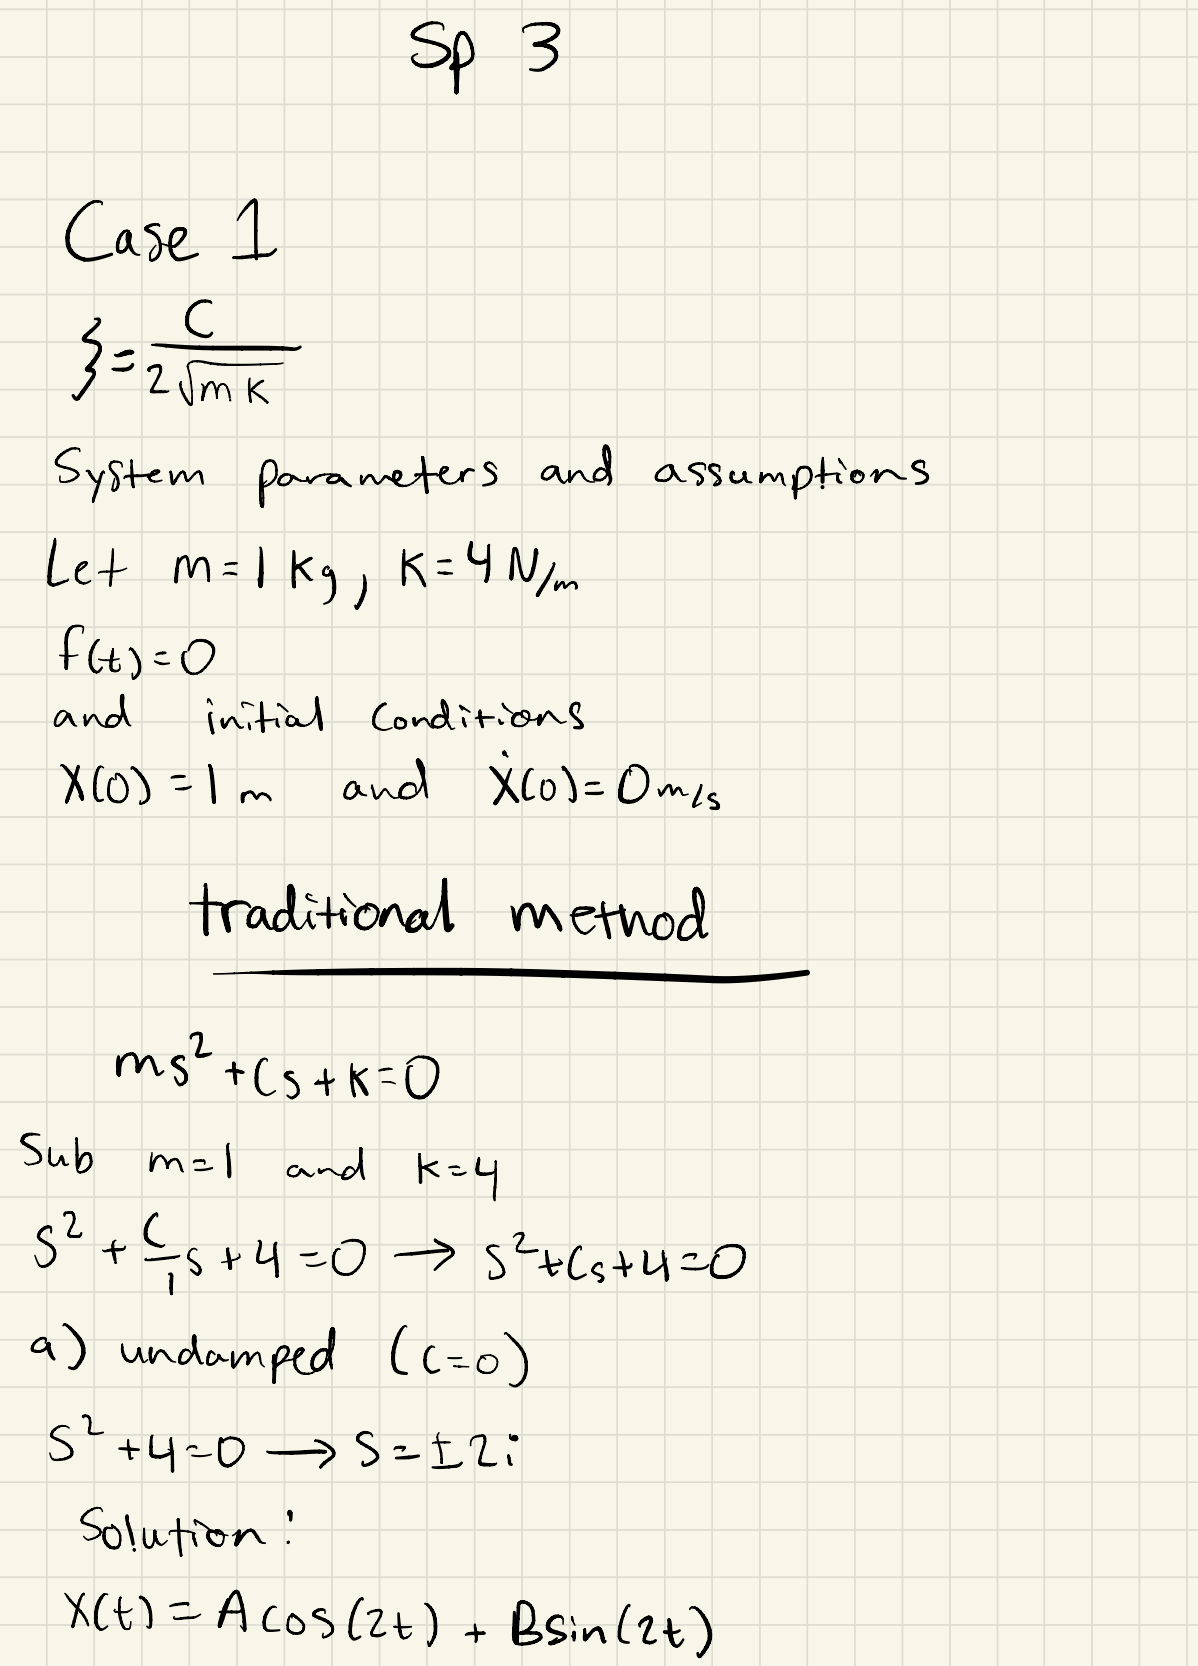 Sp 3
Case 1
ξ = C / 2√mK
System parameters and assumptions
Let m=1 kg, K=4 N/m
f(t)=0
and initial conditions
X(0)=1 m and Ẋ(0)=0 m/s
traditional method
ms² + Cs + K=0
Sub m=1 and K=4
S² + C/1 s + 4 = 0 → S² + Cs + 4 = 0
a) undamped (C=0)
S² + 4 = 0 → S = ±2i
Solution:
X(t) = A cos(2t) + B sin(2t)